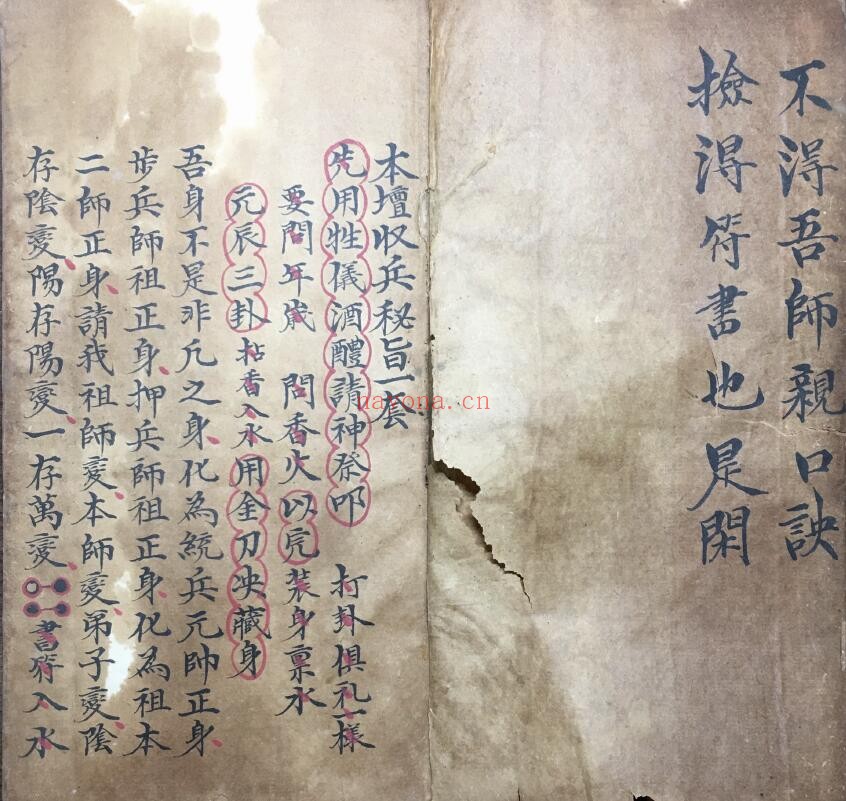 不得吾師親口訣
撿得符書也是閑
本壇收兵秘旨一套
先用牲儀酒醴請神祭叩 打卦俱礼一樣
要問年歲 問香火以完裝身稟水
元辰三卦拈香入水用金刀决藏身
吾身不是非凢之身化為統兵元帥正身
步兵師祖正身押兵師祖正身化為祖本
二師正身請我祖師变本師变弟子变陰
存陰变陽存陽变一存萬变書符入水
nayona.cn